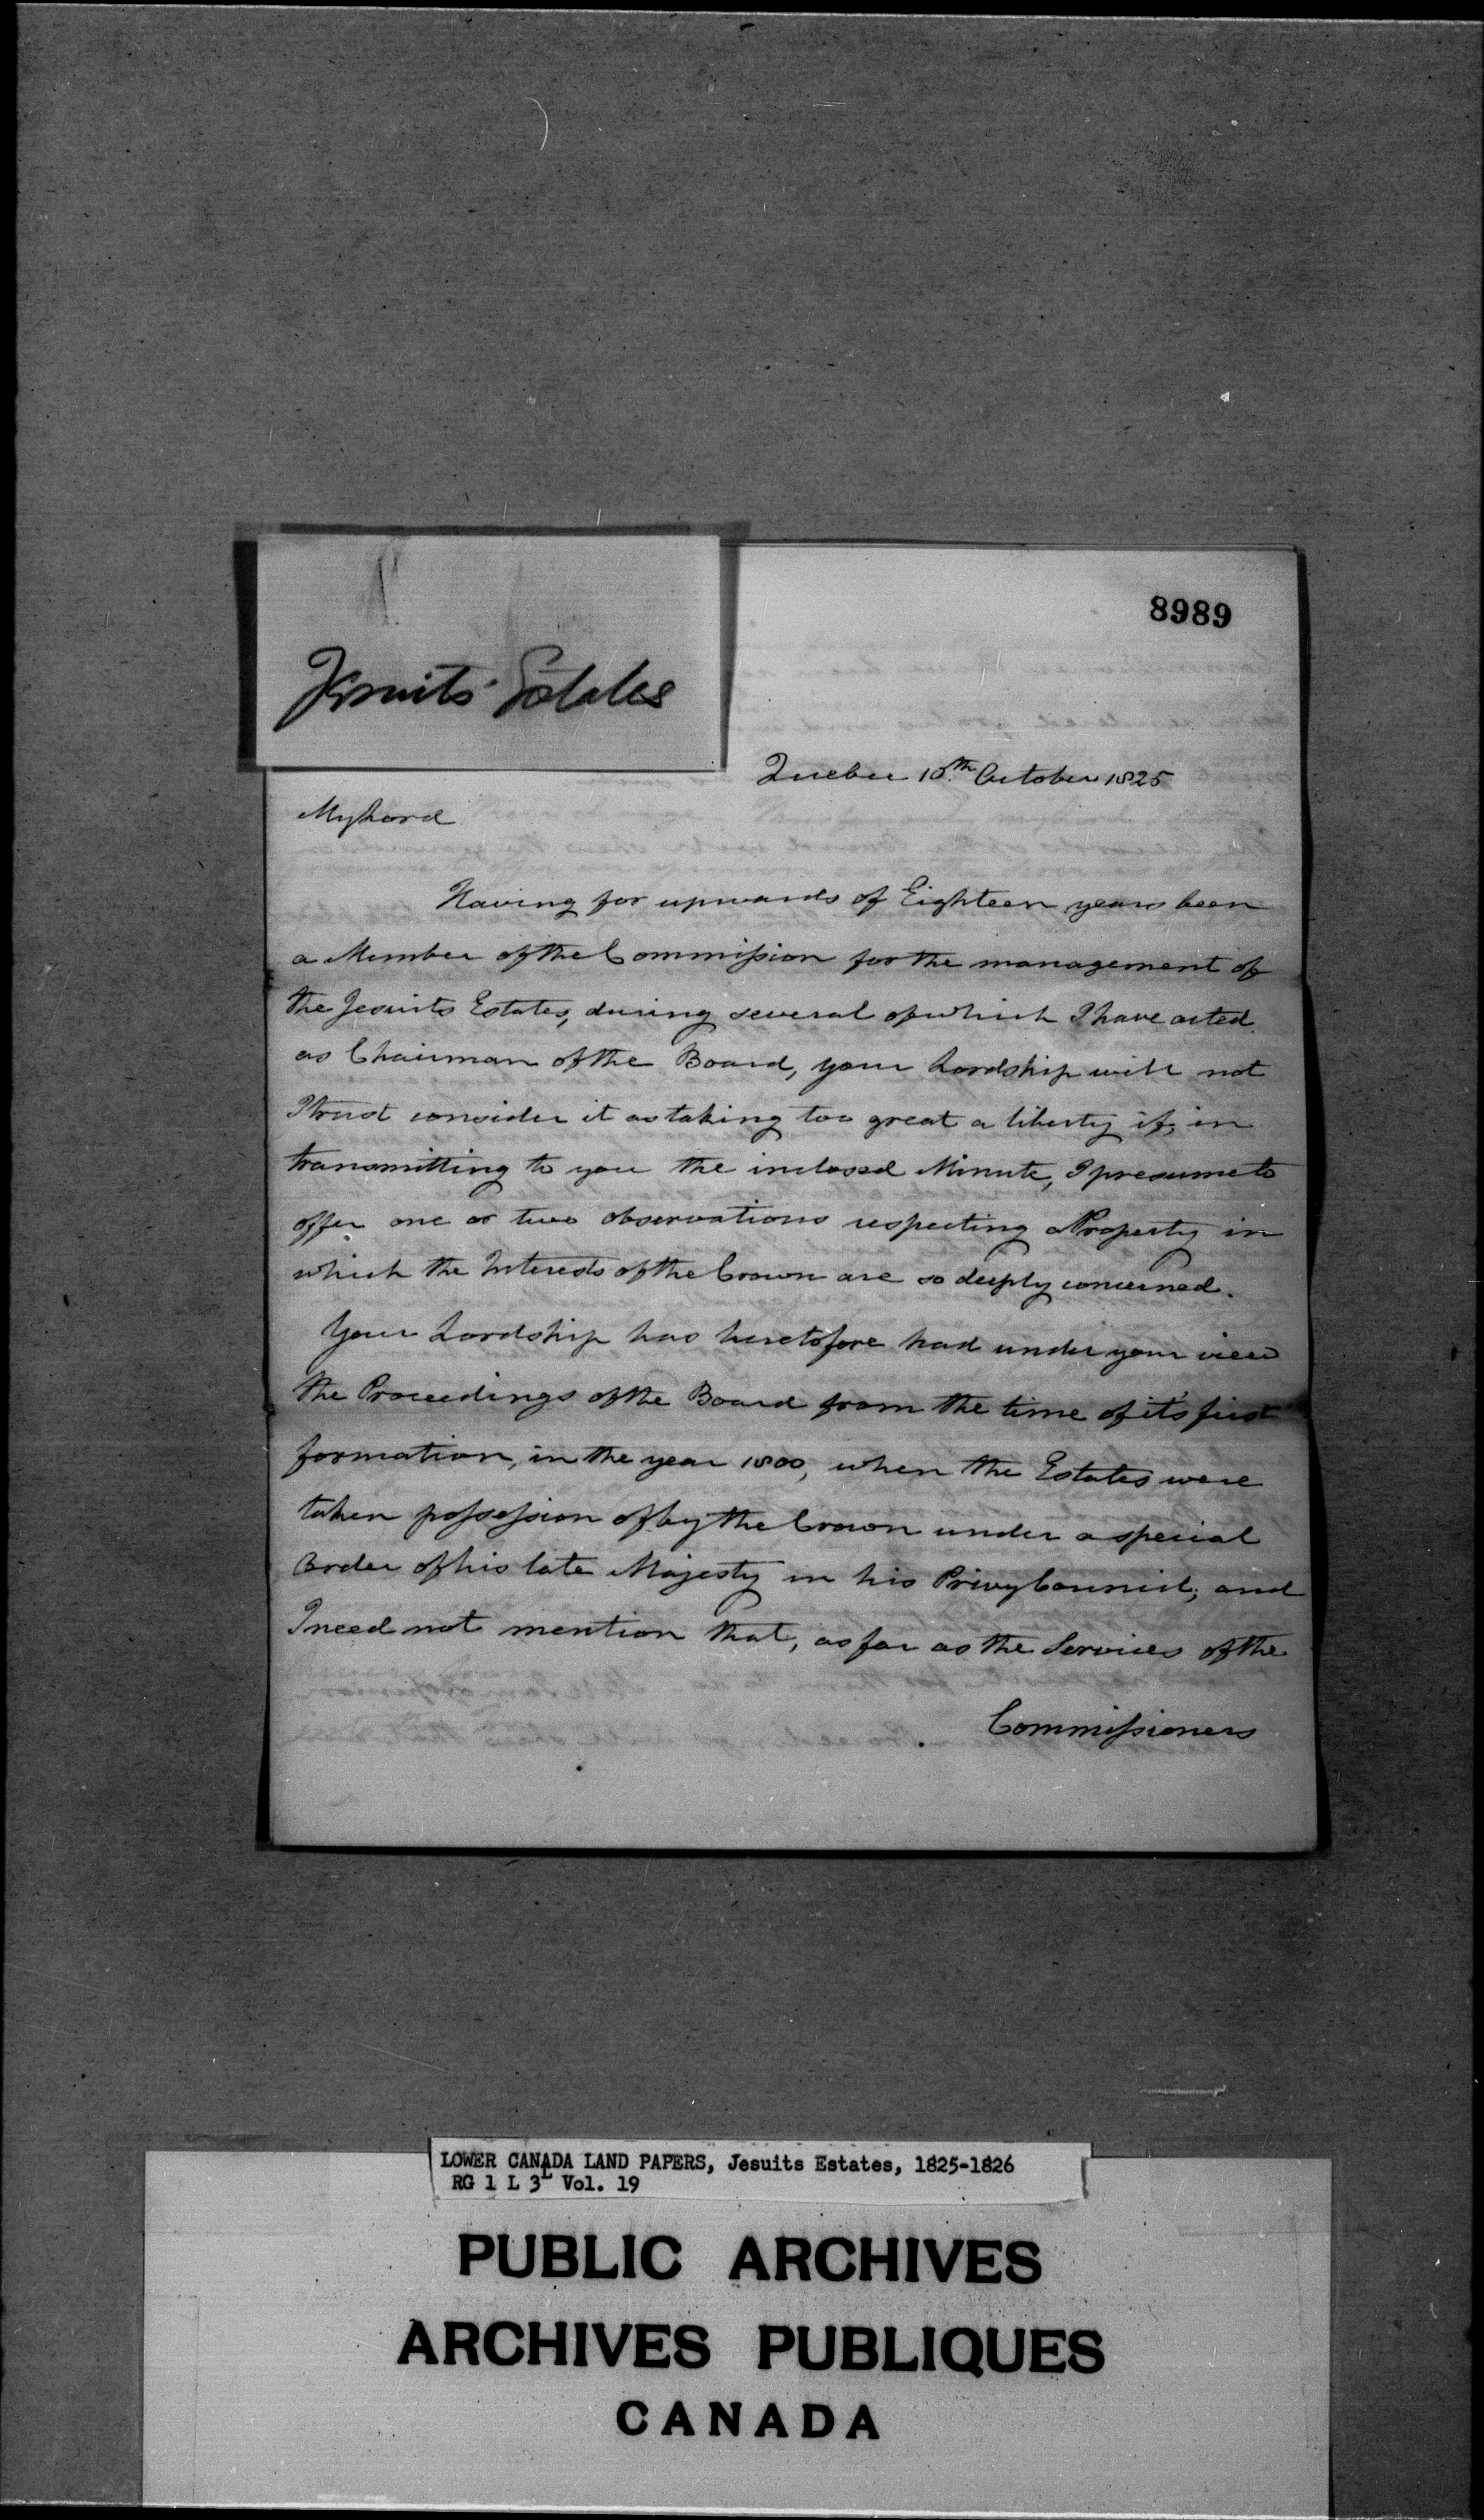 8989
Jesuits' Estates
Quebec 10th October 1825
My Lord
Having for upwards of Eighteen years been
a Member of the Commission for the management of
the Jesuits Estates, during several of which I have acted
as Chairman of the Board, your Lordship will not
I trust consider it as taking too great a liberty if, in
transmitting to you the inclosed Minute, I presume to
offer one or two observations respecting a Property in
which the Interests of the Crown are so deeply concerned.
Your Lordship has heretofore had under your view
the Proceedings of the Board from the time of it's first
formation, in the year 1800, when the Estates were
taken possession of by the Crown under a special
Order of his late Majesty in his Privy Council; and
I need not mention that, as far as the Services of the
Commissioners
LOWER CANADA LAND PAPERS, Jesuits Estates, 1825-1826
RG 1 L 3L Vol. 19
PUBLIC ARCHIVES
ARCHIVES PUBLIQUES
CANADA